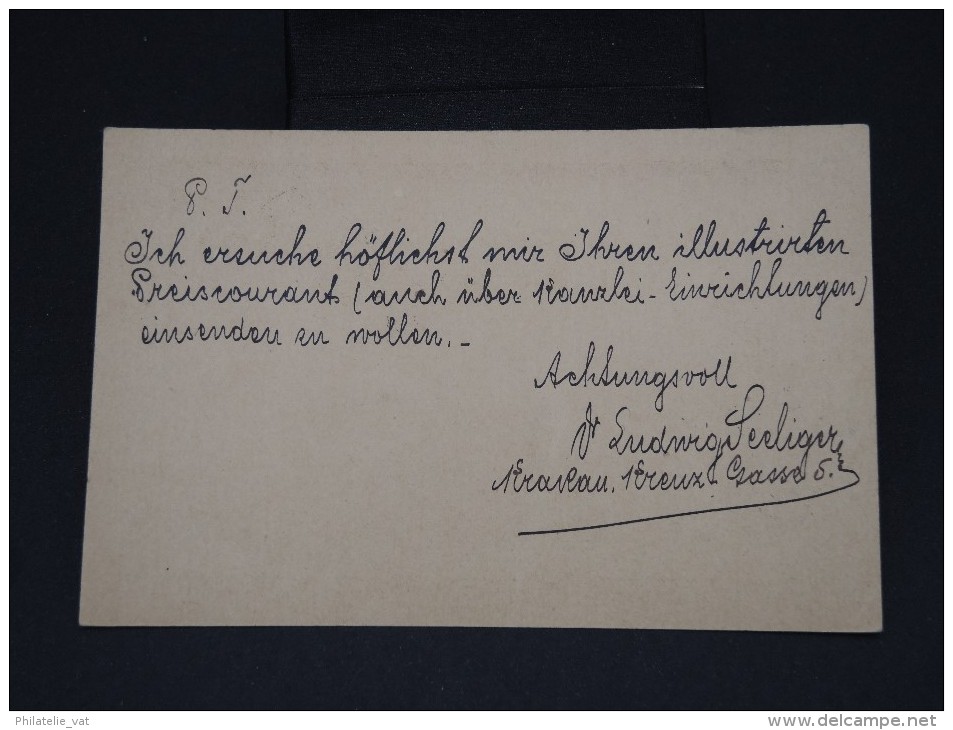 P. T.
Ich ersuche höflichst mir Ihren illustrirten
Preiscourant (auch über Kanzlei-Einrichtungen)
einsenden zu wollen. –
Achtungsvoll
Dr Ludwig Seeliger
Krakau, Kreuz Gasse 5.
Philatelie_vat
www.delcampe.net